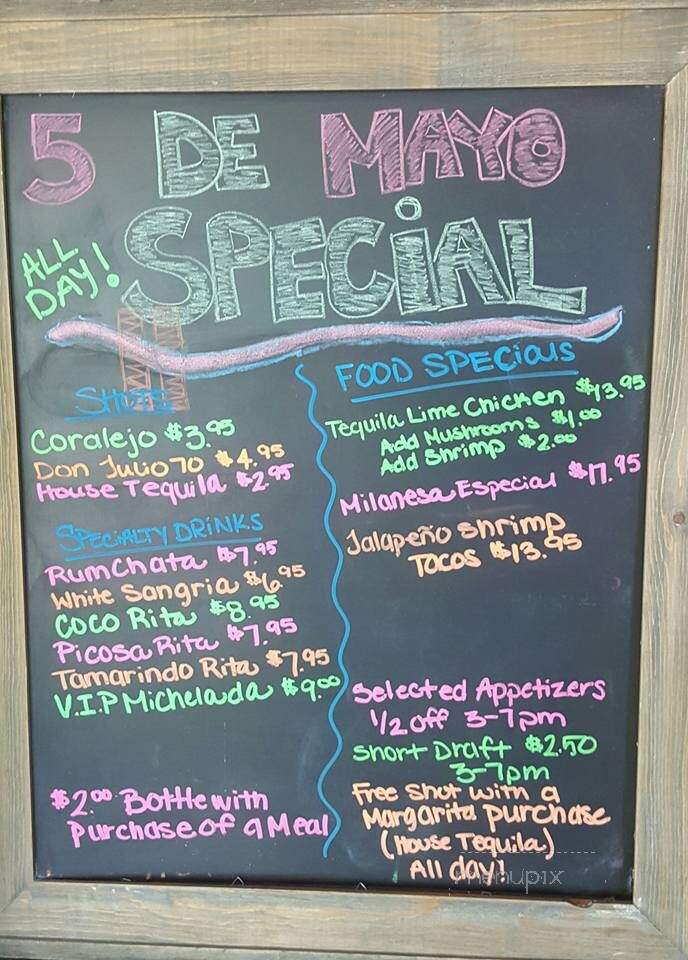 5 DE MAYO
SPECiAL
ALL
DAY!
SHOTS
Coralejo $3.95
Don Julio 70 $4.95
House Tequila $2.95
SPECIALTY DRINKS
RumChata $7.95
White Sangria $6.95
COCO Rita $8.95
Picosa Rita $7.95
Tamarindo Rita $7.95
V.I.P Michelada $9.00
$2.00 Bottle with
Purchase of a Meal
FOOD SPECiaLS
Tequila Lime Chicken $13.95
Add Mushrooms $1.00
Add Shrimp $2.00
Milanesa Especial $17.95
Jalapeño shrimp
TACOS $13.95
Selected Appetizers
1/2 off 3-7pm
Short Draft $2.50
3-7pm
Free Shot with a
Margarita purchase
(House Tequila)
All day!
menupix